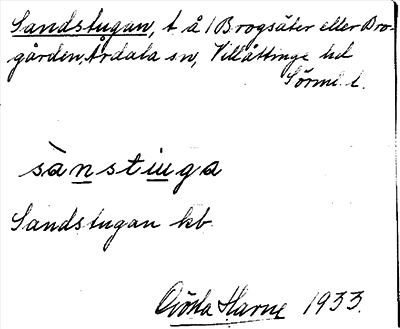 Sandstugan, t å 1 Brogsäter eller Bro-
gården, Årdala sn, Villåttinge hd
Sörml. l.
sànstiuga
Sandstugan kb.
Gösta Harne 1933.